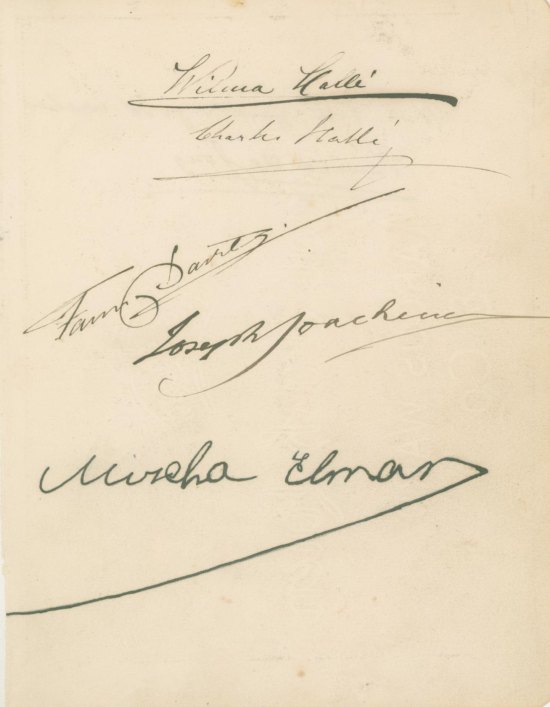 Wilma Hallé
Charles Hallé
Fanny Davies.
Joseph Joachim
Mischa Elman